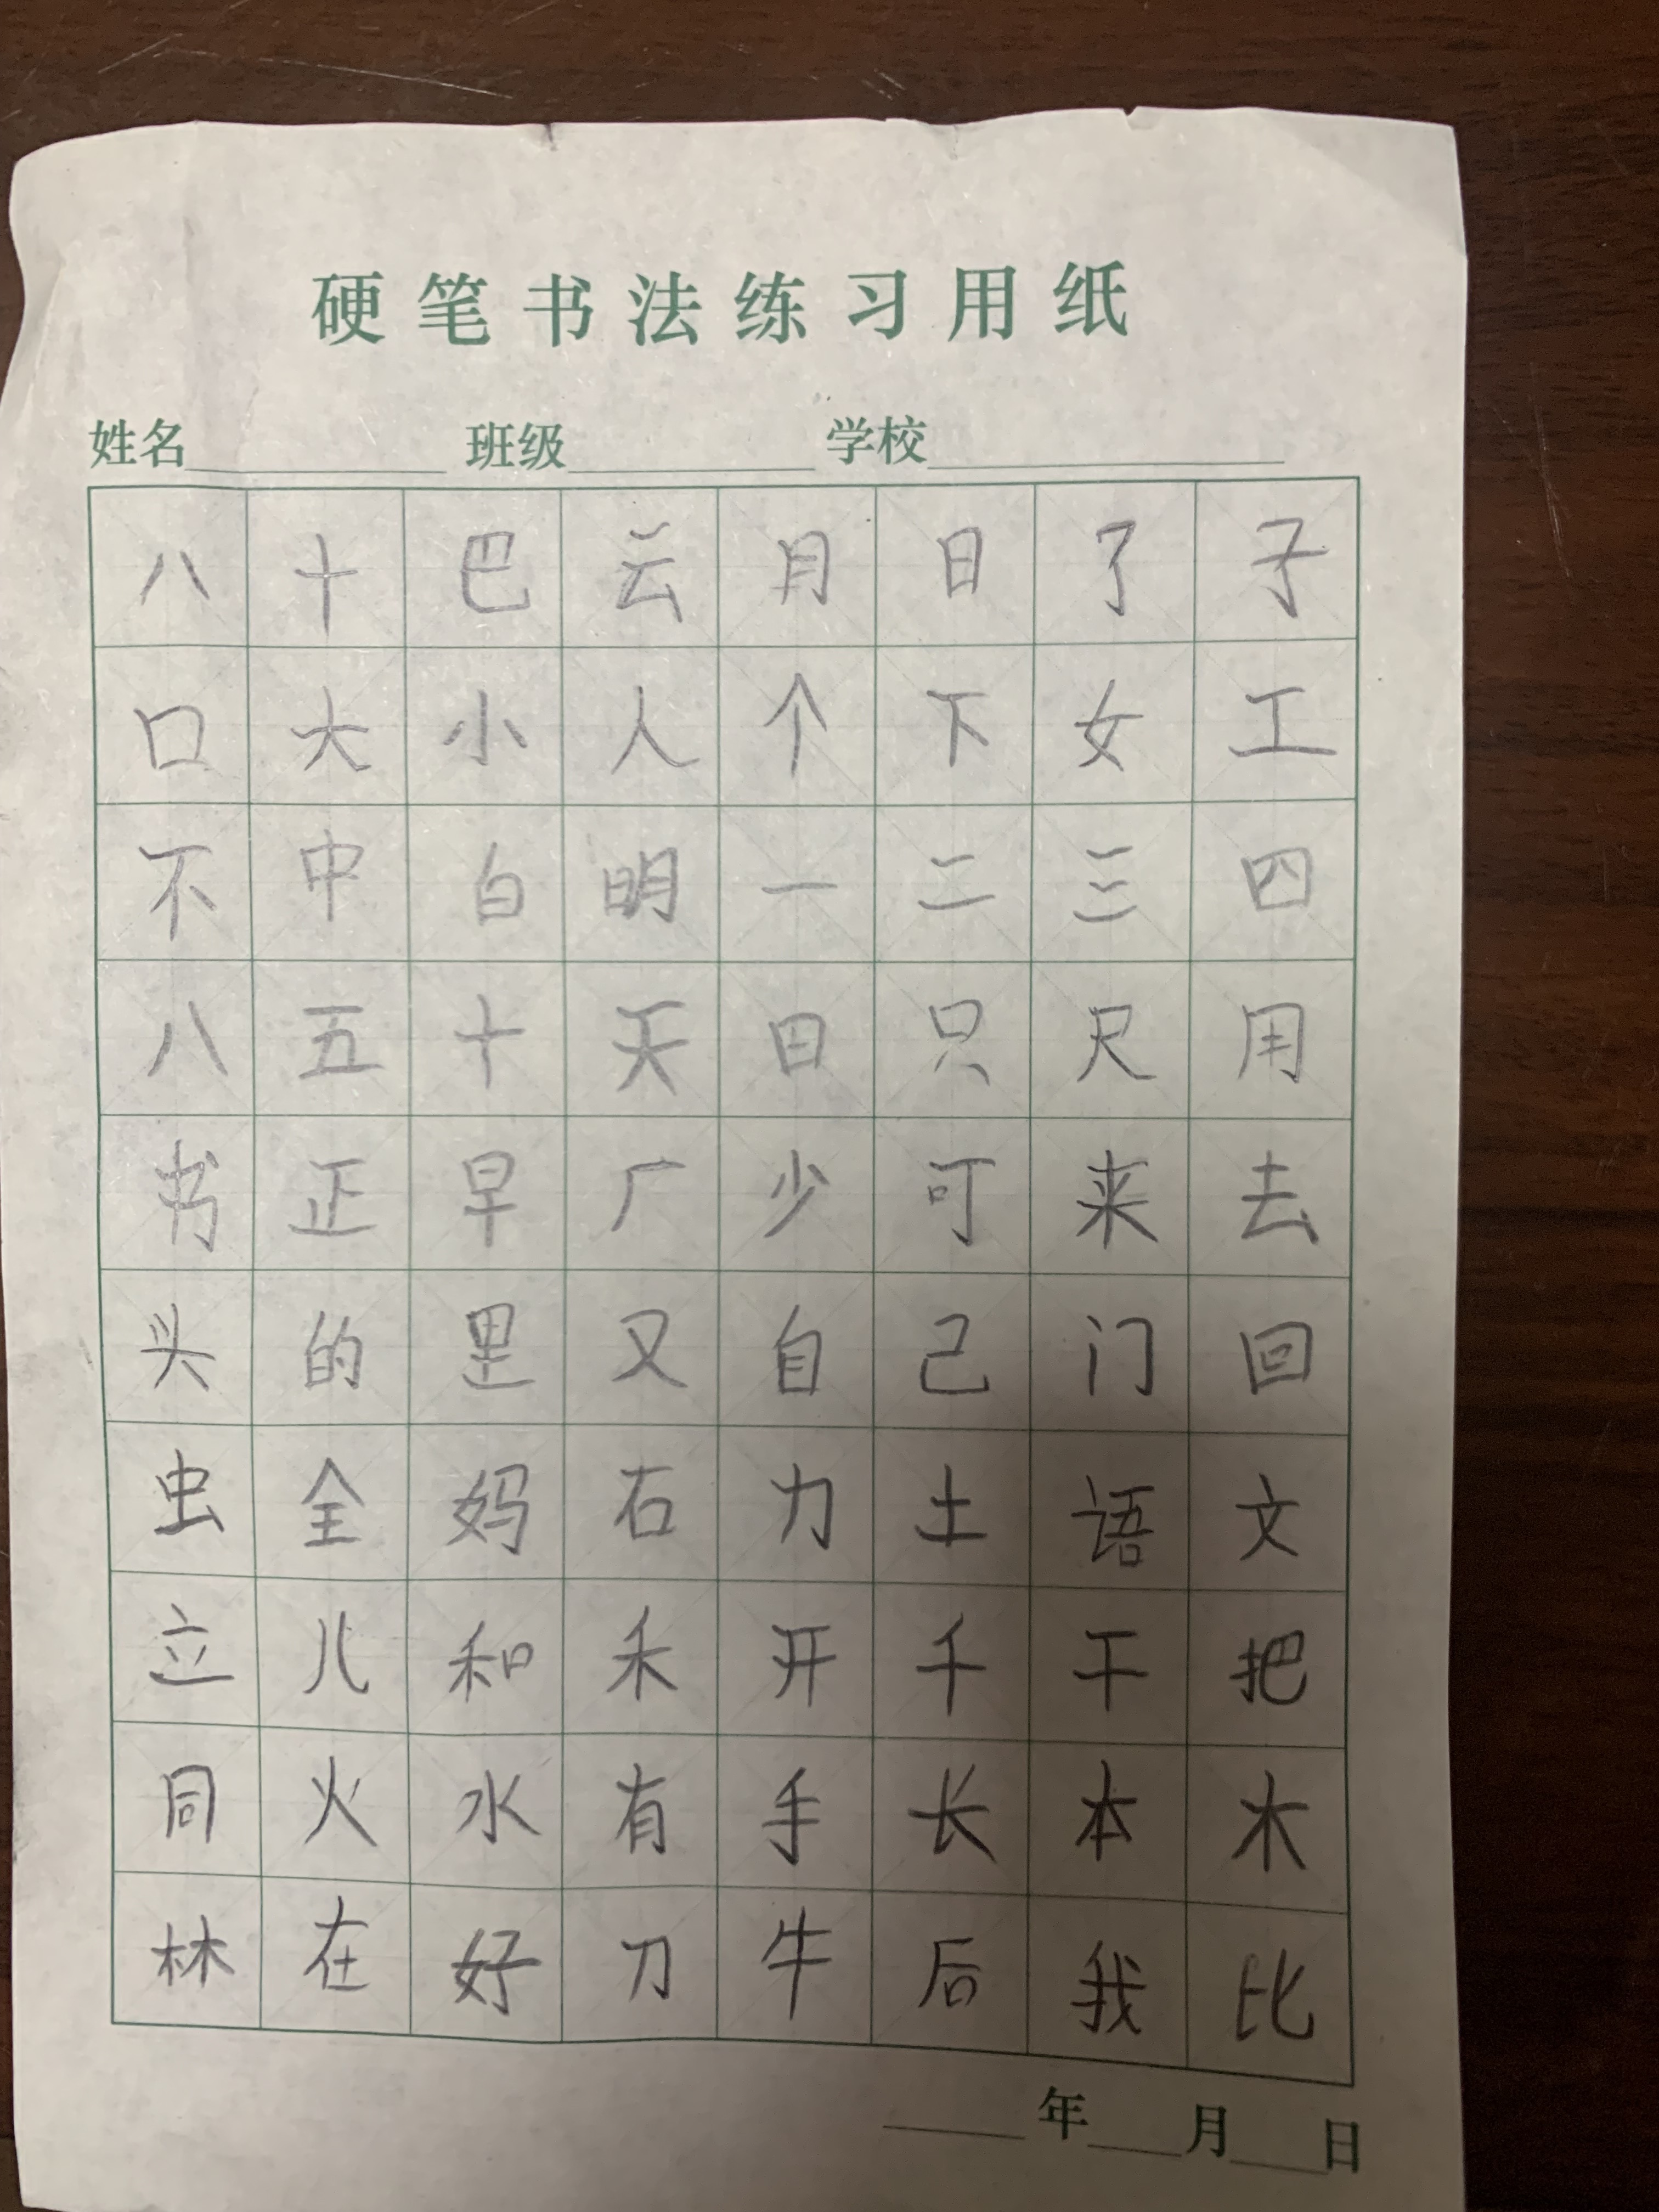 硬笔书法练习用纸
姓名 班级 学校
八 十 巴 云 月 日 了 子
口 大 小 人 个 下 女 工
不 中 白 明 一 二 三 四
八 五 十 天 日 只 尺 用
书 正 早 广 少 可 来 去
头 的 里 又 自 己 门 回
虫 全 妈 石 力 土 语 文
立 儿 和 禾 开 千 干 把
同 火 水 有 手 长 本 木
林 在 好 刀 牛 后 我 比
年 月 日